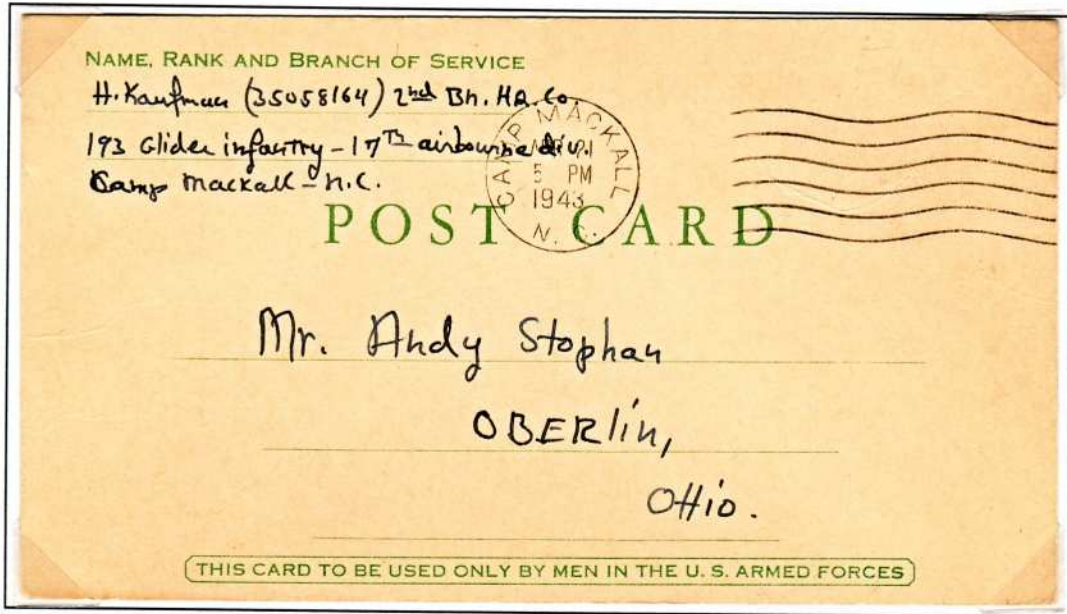 NAME, RANK AND BRANCH OF SERVICE
H. Kaufman (35058164) 2nd Bn. HQ. Co.
193 Glider infantry - 17th airbourne div.
Camp Mackall - N.C.
CAMP MACKALL
21
5 PM
1943
N. C.
POST CARD
Mr. Andy Stophan
OBERlin,
OHio.
(THIS CARD TO BE USED ONLY BY MEN IN THE U. S. ARMED FORCES)